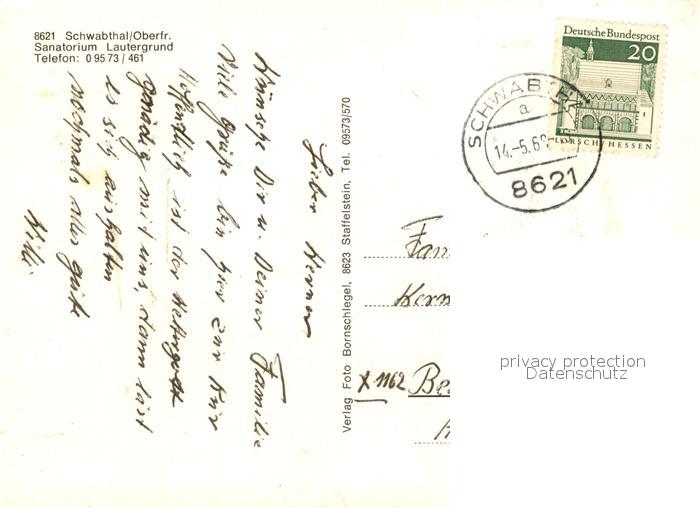 8621 Schwabthal/Oberfr.
Sanatorium Lautergrund
Telefon: 0 95 73 / 461
Lieber Werner
Wünsche Dir u. Deiner Familie
Viele Grüße bin hier zur Kur
Hoffentlich ist der Wettergott
gnädig mit uns, dann läst
es sich aushalten
nochmals alles gute
Willi
Verlag Foto Bornschlegel, 8623 Staffelstein, Tel. 09573/570
Deutsche Bundespost
20
LORSCH/HESSEN
SCHWABTHA
a
14.-5.6
8621
Fam
X 1162 Be
privacy protection
Datenschutz